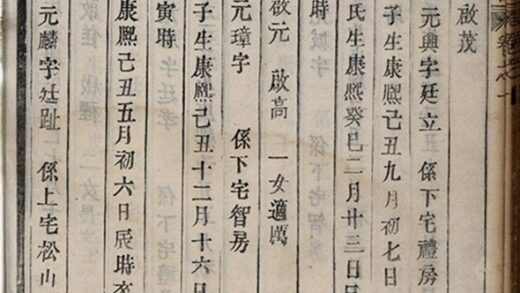 啟茂
元興字廷立 係下宅禮房
子生康熙己丑九月初七日
氏生康熙癸巳二月廿三日
時
啟元 啟高 一女適萬
元璋字 係下宅智房
子生康熙己丑十二月十六日
寅時
康熙己丑五月初六日辰時
元麟字廷趾 係上宅松山